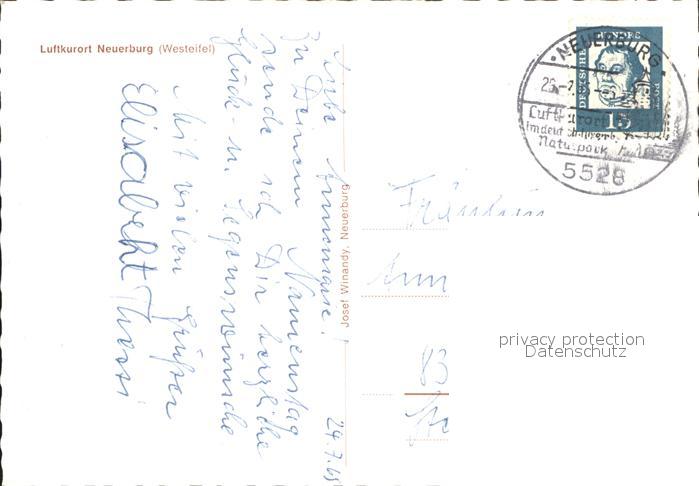 Luftkurort Neuerburg (Westeifel)
24.7.65
Liebe Annemarie!
Zu Deinem Namenstag
sende ich Dir herzliche
Glück- u. Segenswünsche.
Mit vielen Grüßen
Elisabeth
Josef Winandy, Neuerburg
DEUTSCHE BUNDESPOST
15
NEUERBURG
Luftkurort
im deut
Naturpark
5528
Fräulein
Ann
privacy protection
Datenschutz